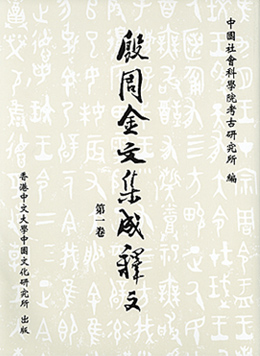 中國社會科學院考古研究所 編
殷周金文集成釋文
第一卷
香港中文大學中國文化研究所 出版